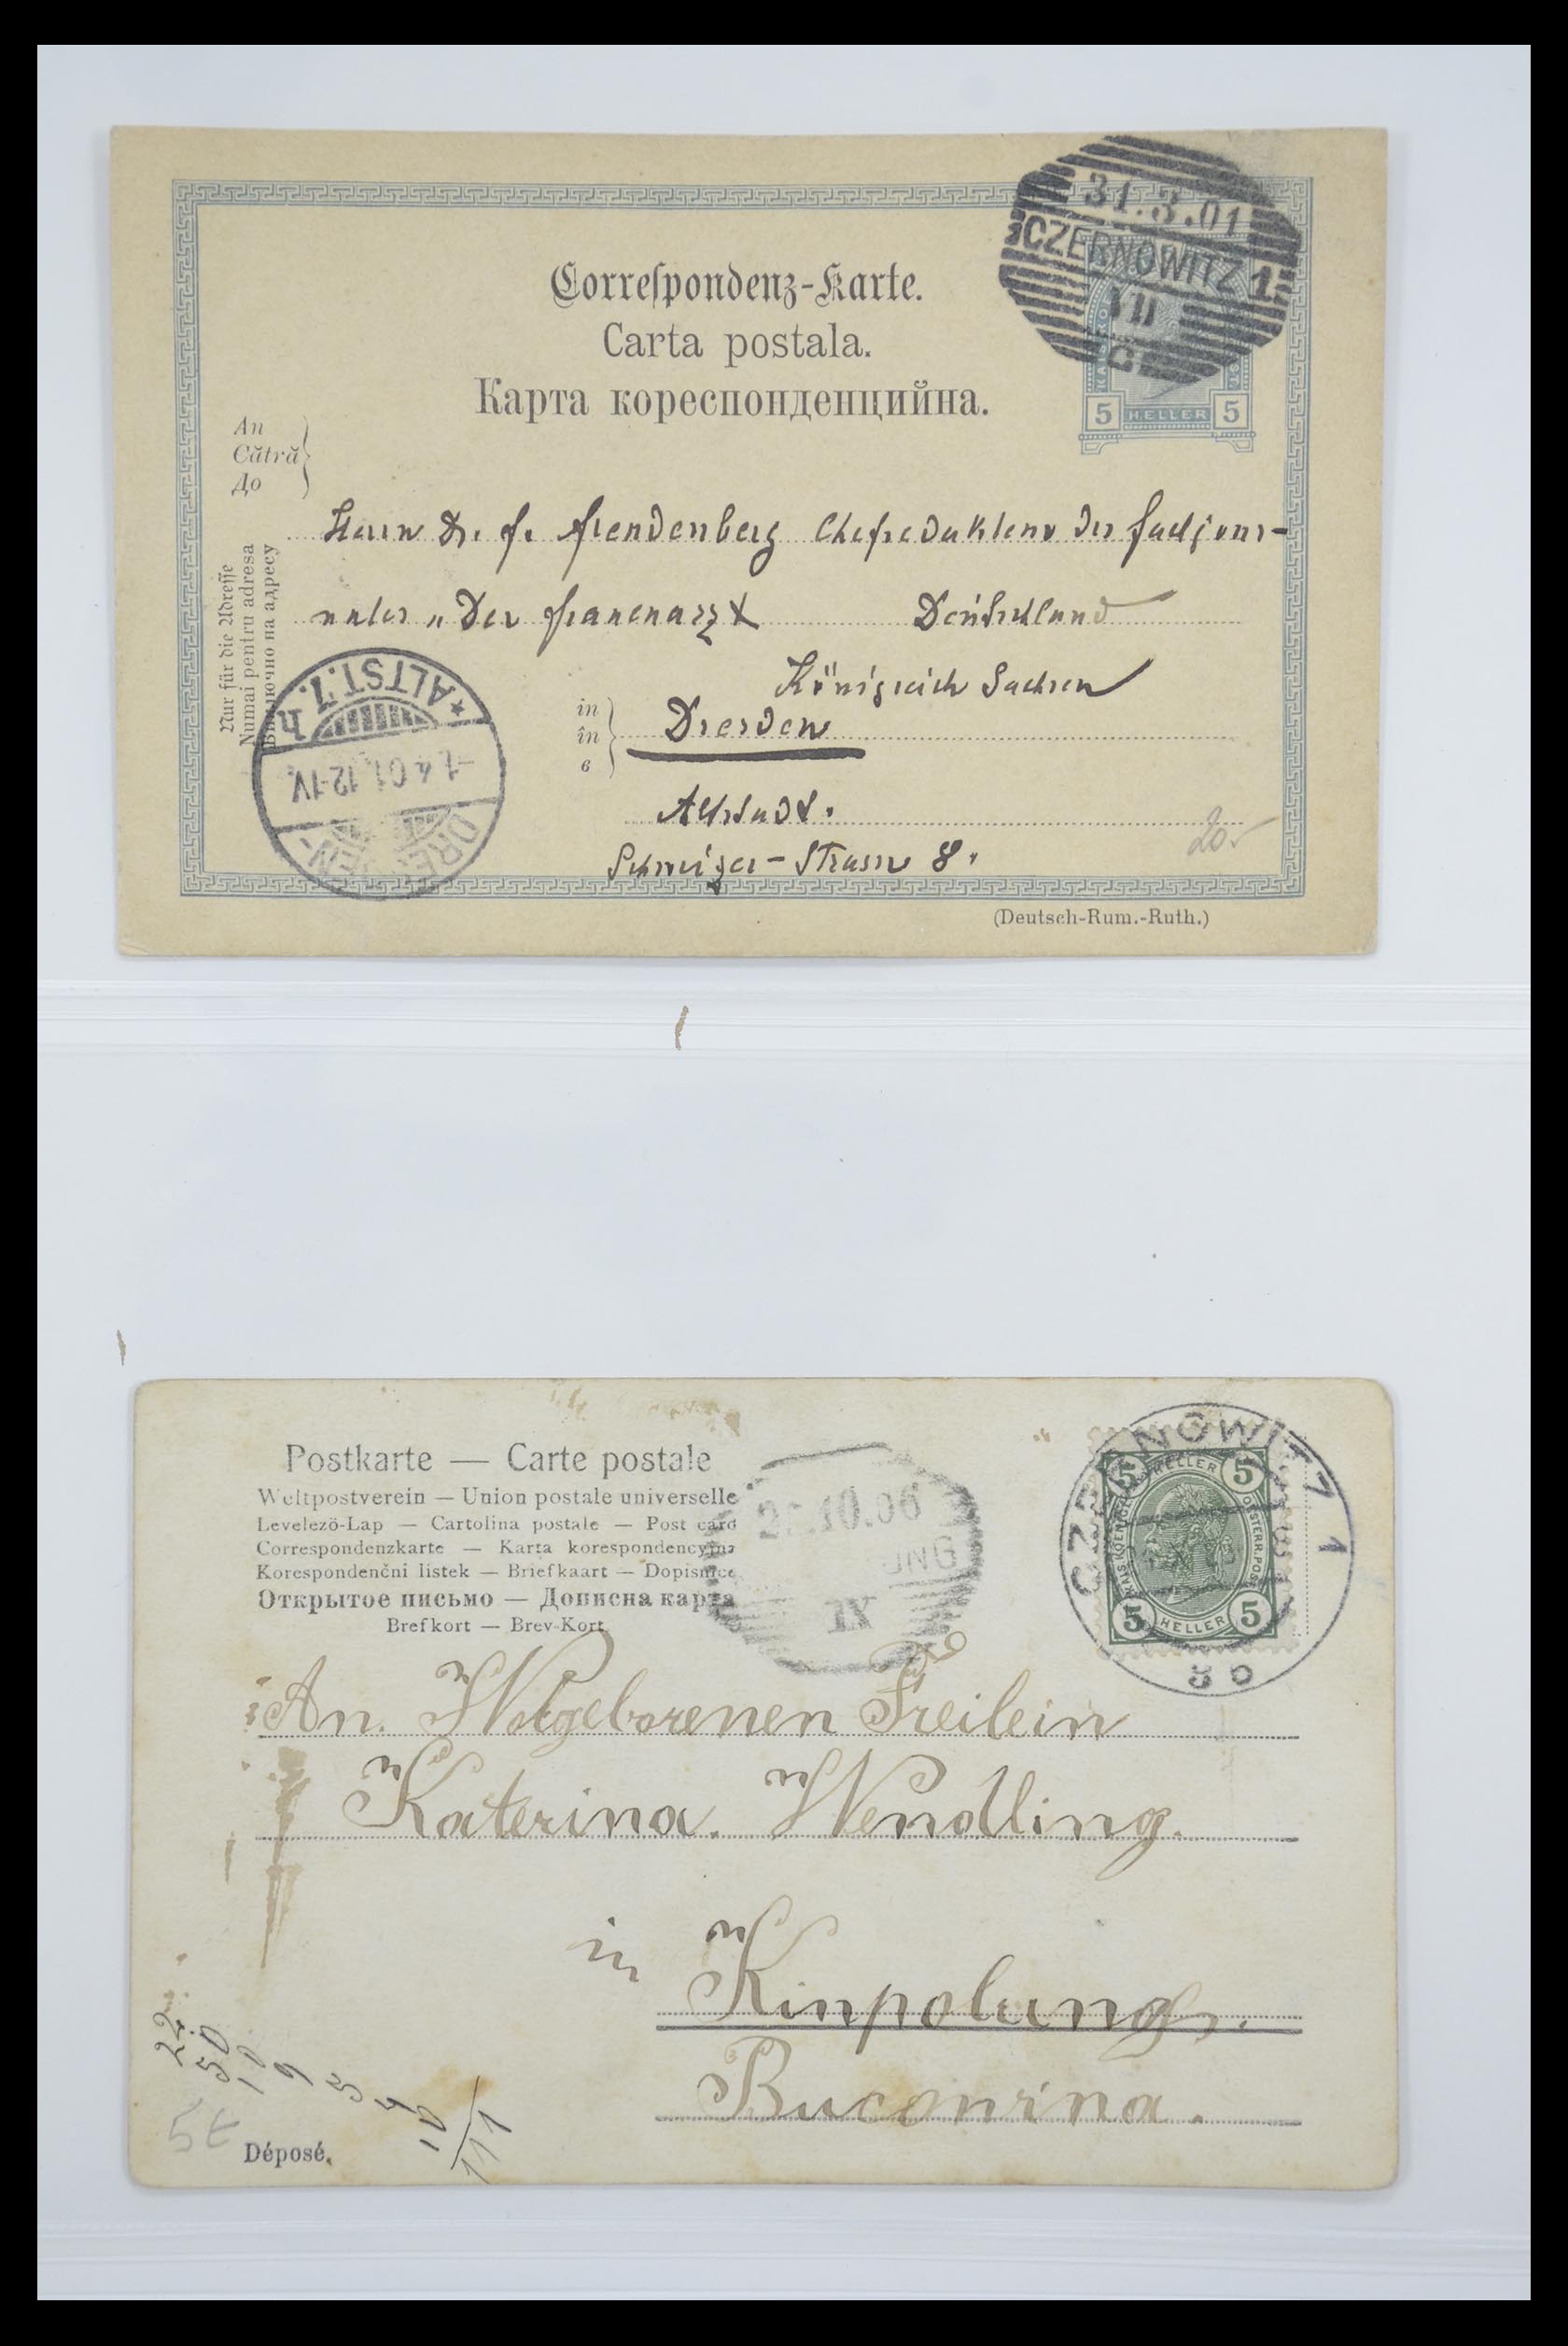 31.3.01
CZERNOWITZ 1
VII
C
5 HELLER 5
Correspondenz-Karte.
Carta postala.
Карта кореспонденцийна.
An
Cătră
До
Nur für die Adresse
Numai pentru adresa
Выключно на адресу
Herrn Dr. f. Chefredakteur der Fachjour-
"Der Frauenarzt Deutschland
Königreich Sachsen
in
în
в
Dresden
Altstadt.
Schweizer-Strasse 8.
20.-
DRESDEN-
1.4.01.12-1V.
ALTST. 1. h
(Deutsch-Rum.-Ruth.)
Postkarte — Carte postale
Weltpostverein — Union postale universelle
Levelező-Lap — Cartolina postale — Post card
Correspondenzkarte — Karta korespondencyjna
Korespondenční listek — Briefkaart — Dopisnice
Открытое письмо — Дописна карта
Brefkort — Brev-Kort
10.06
UNG
IX
CZERNOWITZ 1
5 HELLER 5
KAIS. KOENIGL. OESTERR. POST
5 HELLER 5
An. Wolgeborenen Freilein
Katerina. Wendling.
in Kinpolung.
Buconina.
22
50
10
9
5
4
10
111
Déposé.